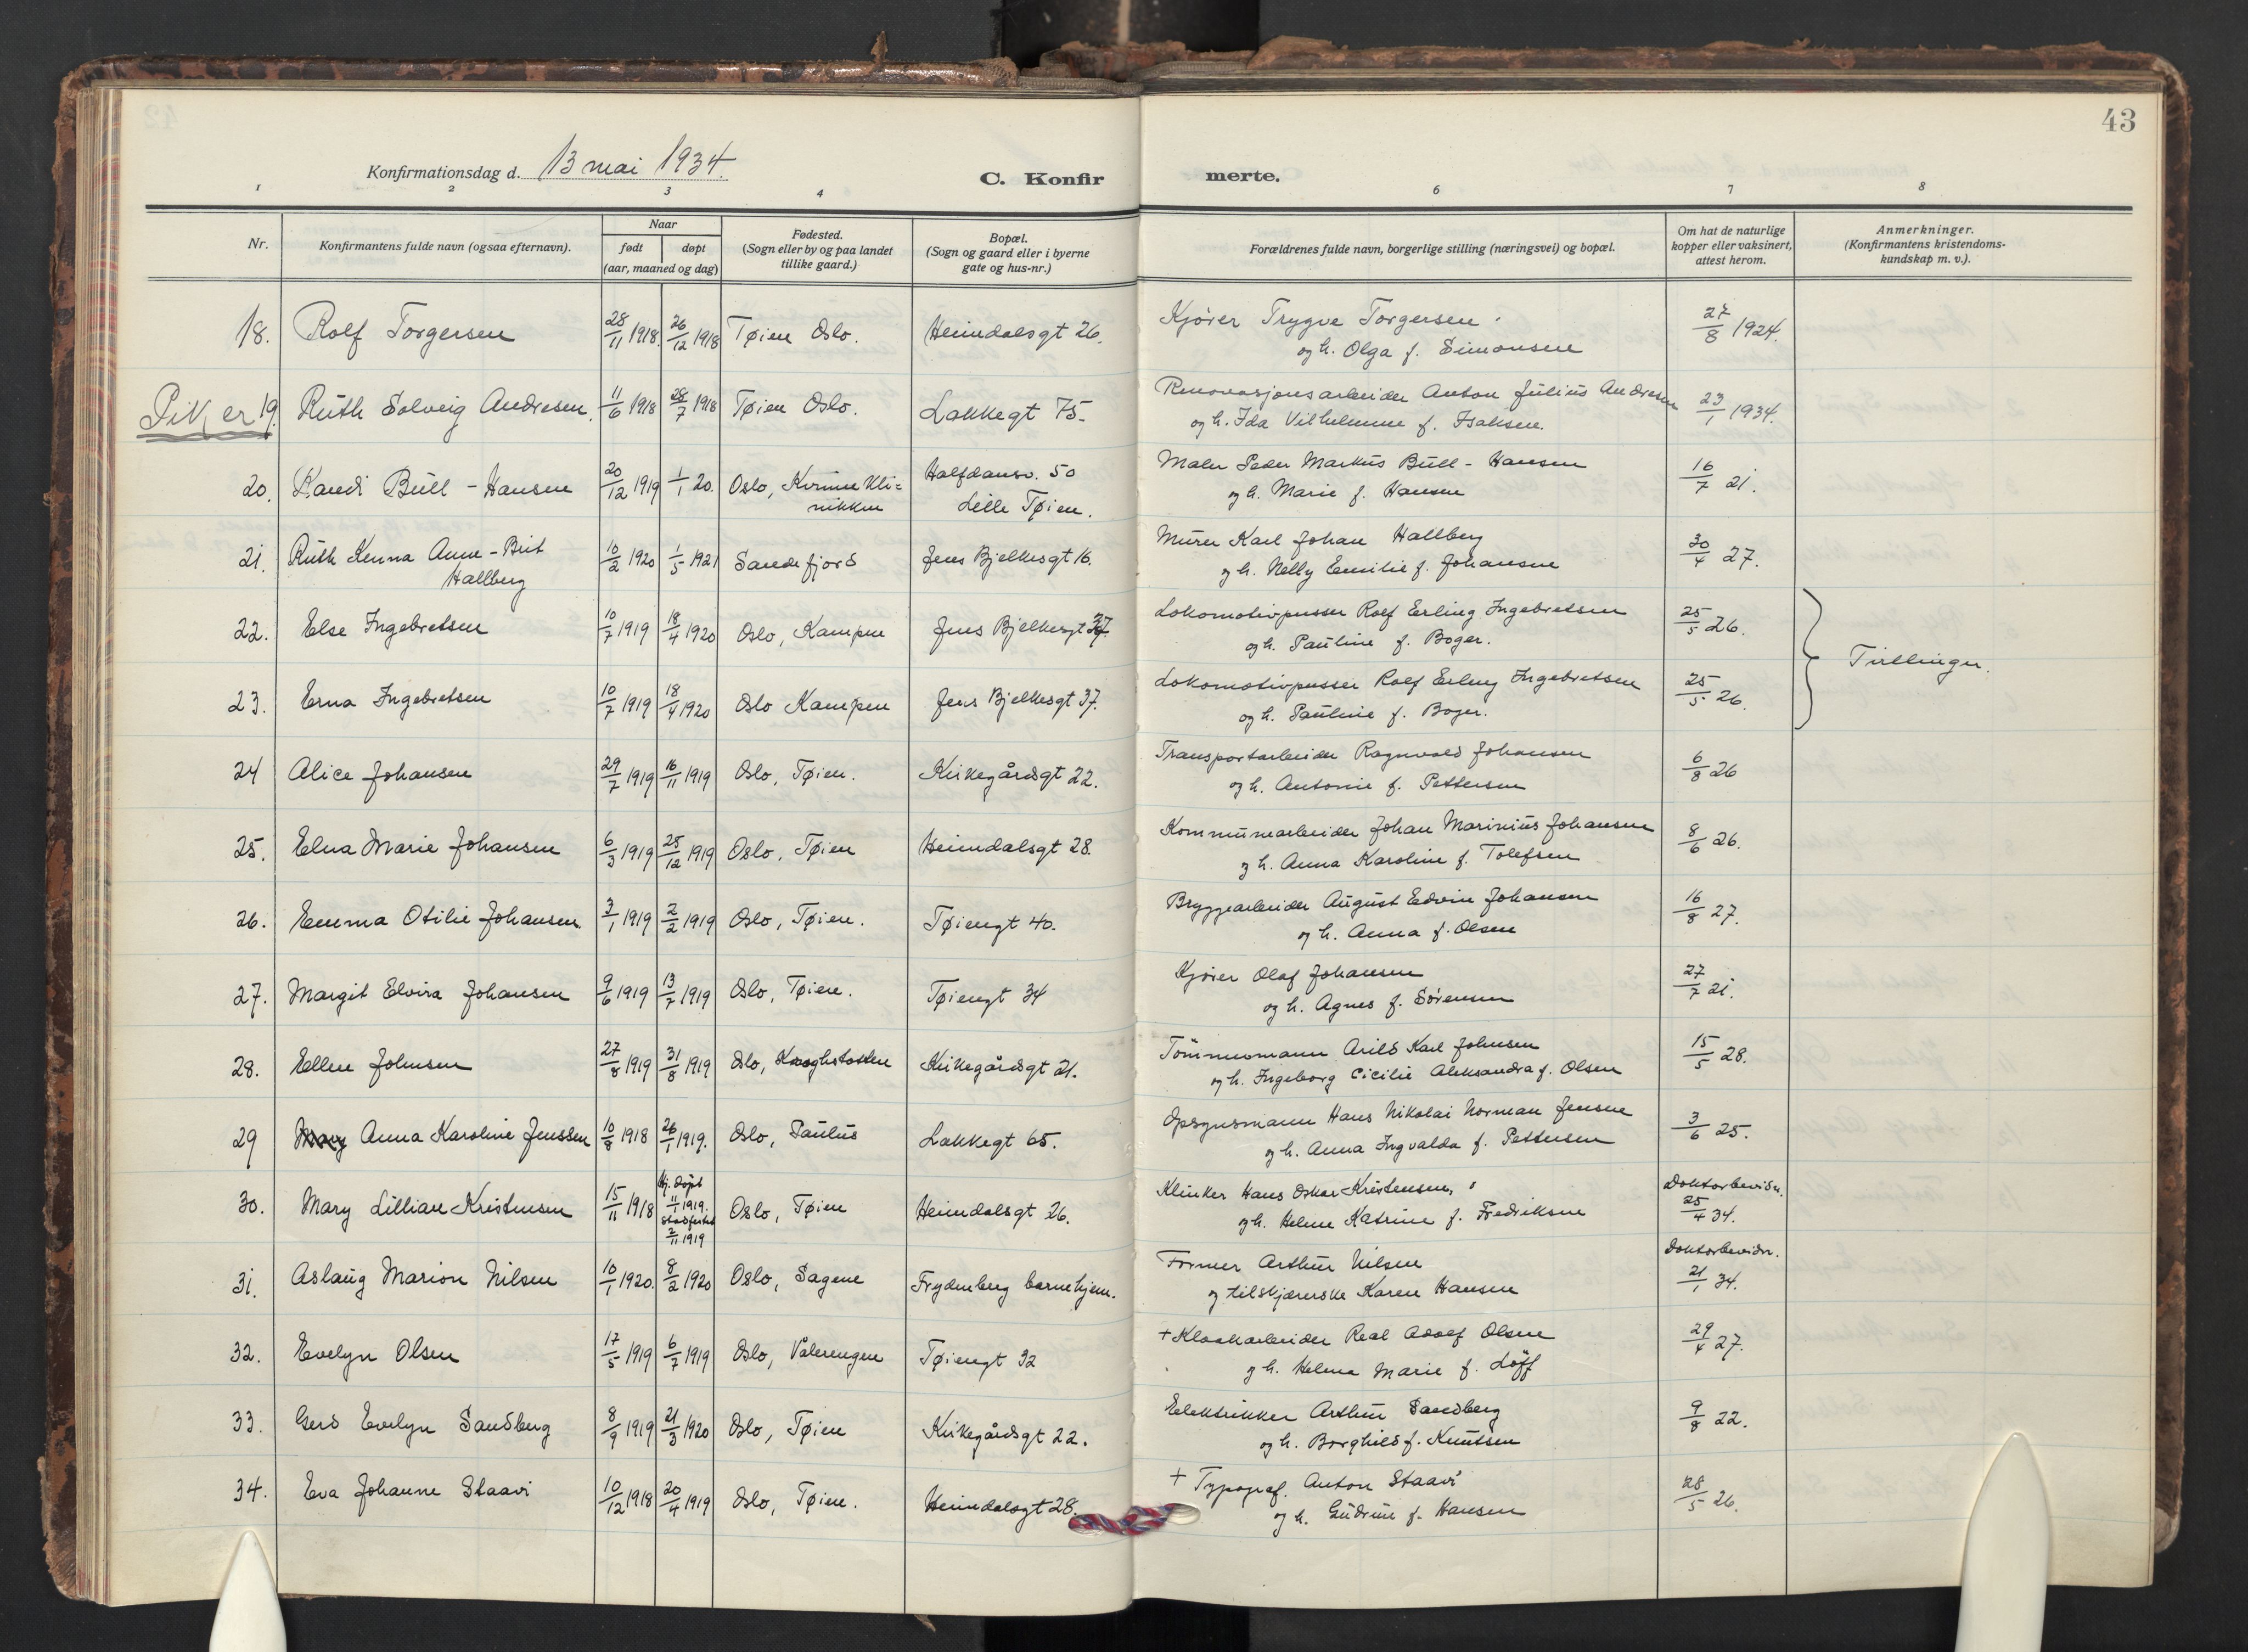 43
Konfirmationsdag d. 13 mai 1934.
C. Konfirmerte.
1 2 3 4 6 7 8
Nr.
Konfirmantens fulde navn (ogsaa efternavn).
Naar
født døpt
(aar, maaned og dag)
Fødested.
(Sogn eller by og paa landet
tillike gaard.)
Bopæl.
(Sogn og gaard eller i byerne
gate og hus-nr.)
Forældrenes fulde navn, borgerlige stilling (næringsvei) og bopæl.
Om hat de naturlige
kopper eller vaksinert,
attest herom.
Anmerkninger.
(Konfirmantens kristendoms-
kundskap m. v.).
18. Rolf Torgersen 28/11 1918. 26/12 1918 Tøien Oslo. Heimdalsgt 26. Kjører Trygve Torgersen 27/8 1924.
og h. Olga f. Simonsen
Piker 19. Ruth Solveig Andresen. 11/6 1918 28/7 1918 Tøien Oslo. Lakkegt 75. Renovasjonsarbeider Anton Julius Andresen 23/1 1934.
og h. Ida Vilhelmine f. Isaksen.
20. Randi Bull-Hansen 20/12 1919 1/1 20. Oslo, Kvinnekli= Halfdansv. 50 Maler Peder Markus Bull-Hansen 16/7 21.
nikken Lille Tøien. og h. Marie f. Hansen
21. Ruth Kenna Anne-Brit 10/2 1920 1/5 1921 Sandefjord Jens Bjelkesgt 16. Murer Karl Johan Hallberg 30/4 27.
Hallberg og h. Nelly Emilie f. Johansen
22. Else Ingebretsen 10/7 1919 18/4 1920 Oslo, Kampen Jens Bjelkesgt 37 Lokomotivpusser Rolf Erling Ingebretsen 25/5 26.
og h. Pauline f. Boger.
Tvillinger.
23. Erna Ingebretsen 10/7 1919 18/4 1920 Oslo Kampen Jens Bjelkesgt 37. Lokomotivpusser Rolf Erling Ingebretsen 25/5 26.
og h. Pauline f. Boger.
24 Alice Johansen 29/7 1919 16/11 1919 Oslo, Tøien. Kirkegårdsgt 22. Transportarbeider Ragnvald Johansen 6/8 26
og h. Antonie f. Pettersen
25. Elna Marie Johansen 6/3 1919 25/12 1919 Oslo, Tøien Heimdalsgt 28. Kommunearbeider Johan Marinius Johansen 8/6 26.
og h. Anna Karoline f. Tolefsen
26. Emma Otilie Johansen. 3/1 1919 2/2 1919 Oslo, Tøien. Tøiengt 40. Bryggearbeider August Edvin Johansen 16/8 27.
og h. Anna f. Olsen
27. Margit Elvira Johansen 9/6 1919 13/7 1919 Oslo, Tøien. Tøiengt 34 Kjører Olaf Johansen 27/7 21.
og h. Agnes f. Sörensen
28. Ellen Johnsen 27/8 1919 31/8 1919 Oslo, Kroghstøtten Kirkegårdsgt 21. Tömmermann Arild Karl Johnsen 15/5 28.
og h. Ingeborg Cicilie Aleksandra f. Olsen
29 Anna Karoline Jenssen 10/8 1918 26/1 1919. Oslo, Paulus Lakkegt 65. Opsynsmann Hans Nikolai Norman Jensen 3/6 25.
og h. Anna Ingvalda f. Pettersen
30. Mary Lillian Kristensen 15/11 1918 Hj. døpt 11/1 1919. stadfestet 2/11 1919 Oslo, Tøien Heimdalsgt 26. Klinker Hans Oskar Kristensen, Doktorbevidn. 25/4 34.
og h. Helene Katrine f. Fredriksen
31. Aslaug Marion Nilsen 10/1 1920. 8/2 1920 Oslo, Sagene Frydenberg barnehjem. Former Arthur Nilsen Doktorbevidn. 21/1 34.
og tilskjærerske Karen Hansen
32. Evelyn Olsen 17/5 1919 6/7 1919 Oslo, Vålerengen Tøiengt 32 + Kloakarbeider Real Adolf Olsen 29/4 27.
og h. Helene Marie f. Löff
33. Gerd Evelyn Sandberg 8/9 1919 21/3 1920 Oslo, Tøien Kirkegårdsgt 22. Elektrikker Arthur Sandberg 9/8 22.
og h. Borghild f. Knutsen
34. Eva Johanne Staavi 10/12 1918 20/4 1919 Oslo, Tøien. Heimdalsgt 28. + Typograf. Anton Staavi 28/5 26.
og h. Gudrun f. Hansen